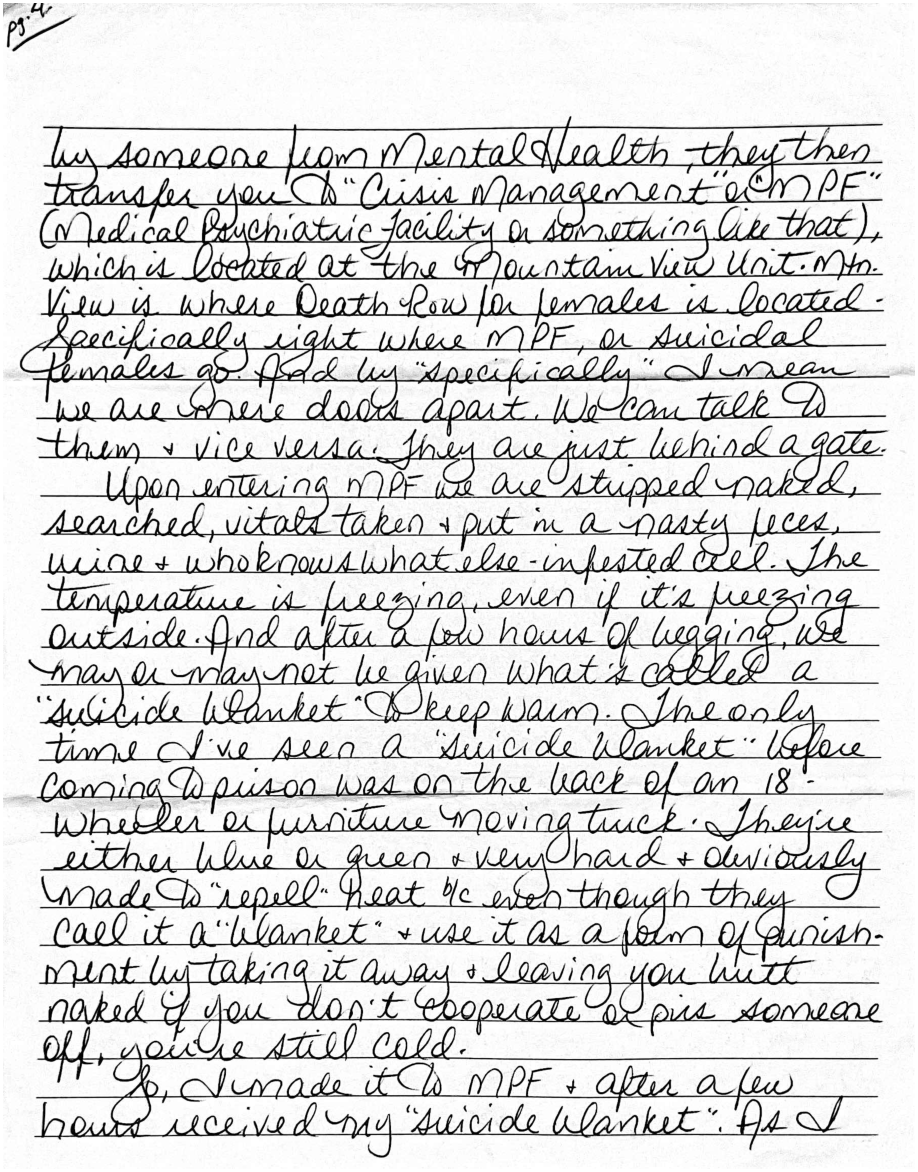 pg. 4
by someone from Mental Health, they then
transfer you to "Crisis Management" or "MPF"
(Medical Psychiatric Facility or something like that),
which is located at the Mountain View Unit. Mtn.
View is where Death Row for females is located.
Specifically right where MPF, or suicidal
females go. And by "specifically" I mean
we are mere doors apart. We can talk to
them + vice versa. They are just behind a gate.
Upon entering MPF we are stripped naked,
searched, vitals taken + put in a nasty feces,
urine + who knows what else-infested cell. The
temperature is freezing, even if it's freezing
outside. And after a few hours of begging, we
may or may not be given what is called a
"suicide blanket" to keep warm. The only
time I've seen a "suicide blanket" before
coming to prison was on the back of an 18-
wheeler or furniture moving truck. They're
either blue or green + very hard + obviously
made to "repell" heat b/c even though they
call it a "blanket" + use it as a form of punish-
ment by taking it away + leaving you butt
naked if you don't cooperate or piss someone
off, you're still cold.
So, I made it to MPF + after a few
hours received my "suicide blanket". As I